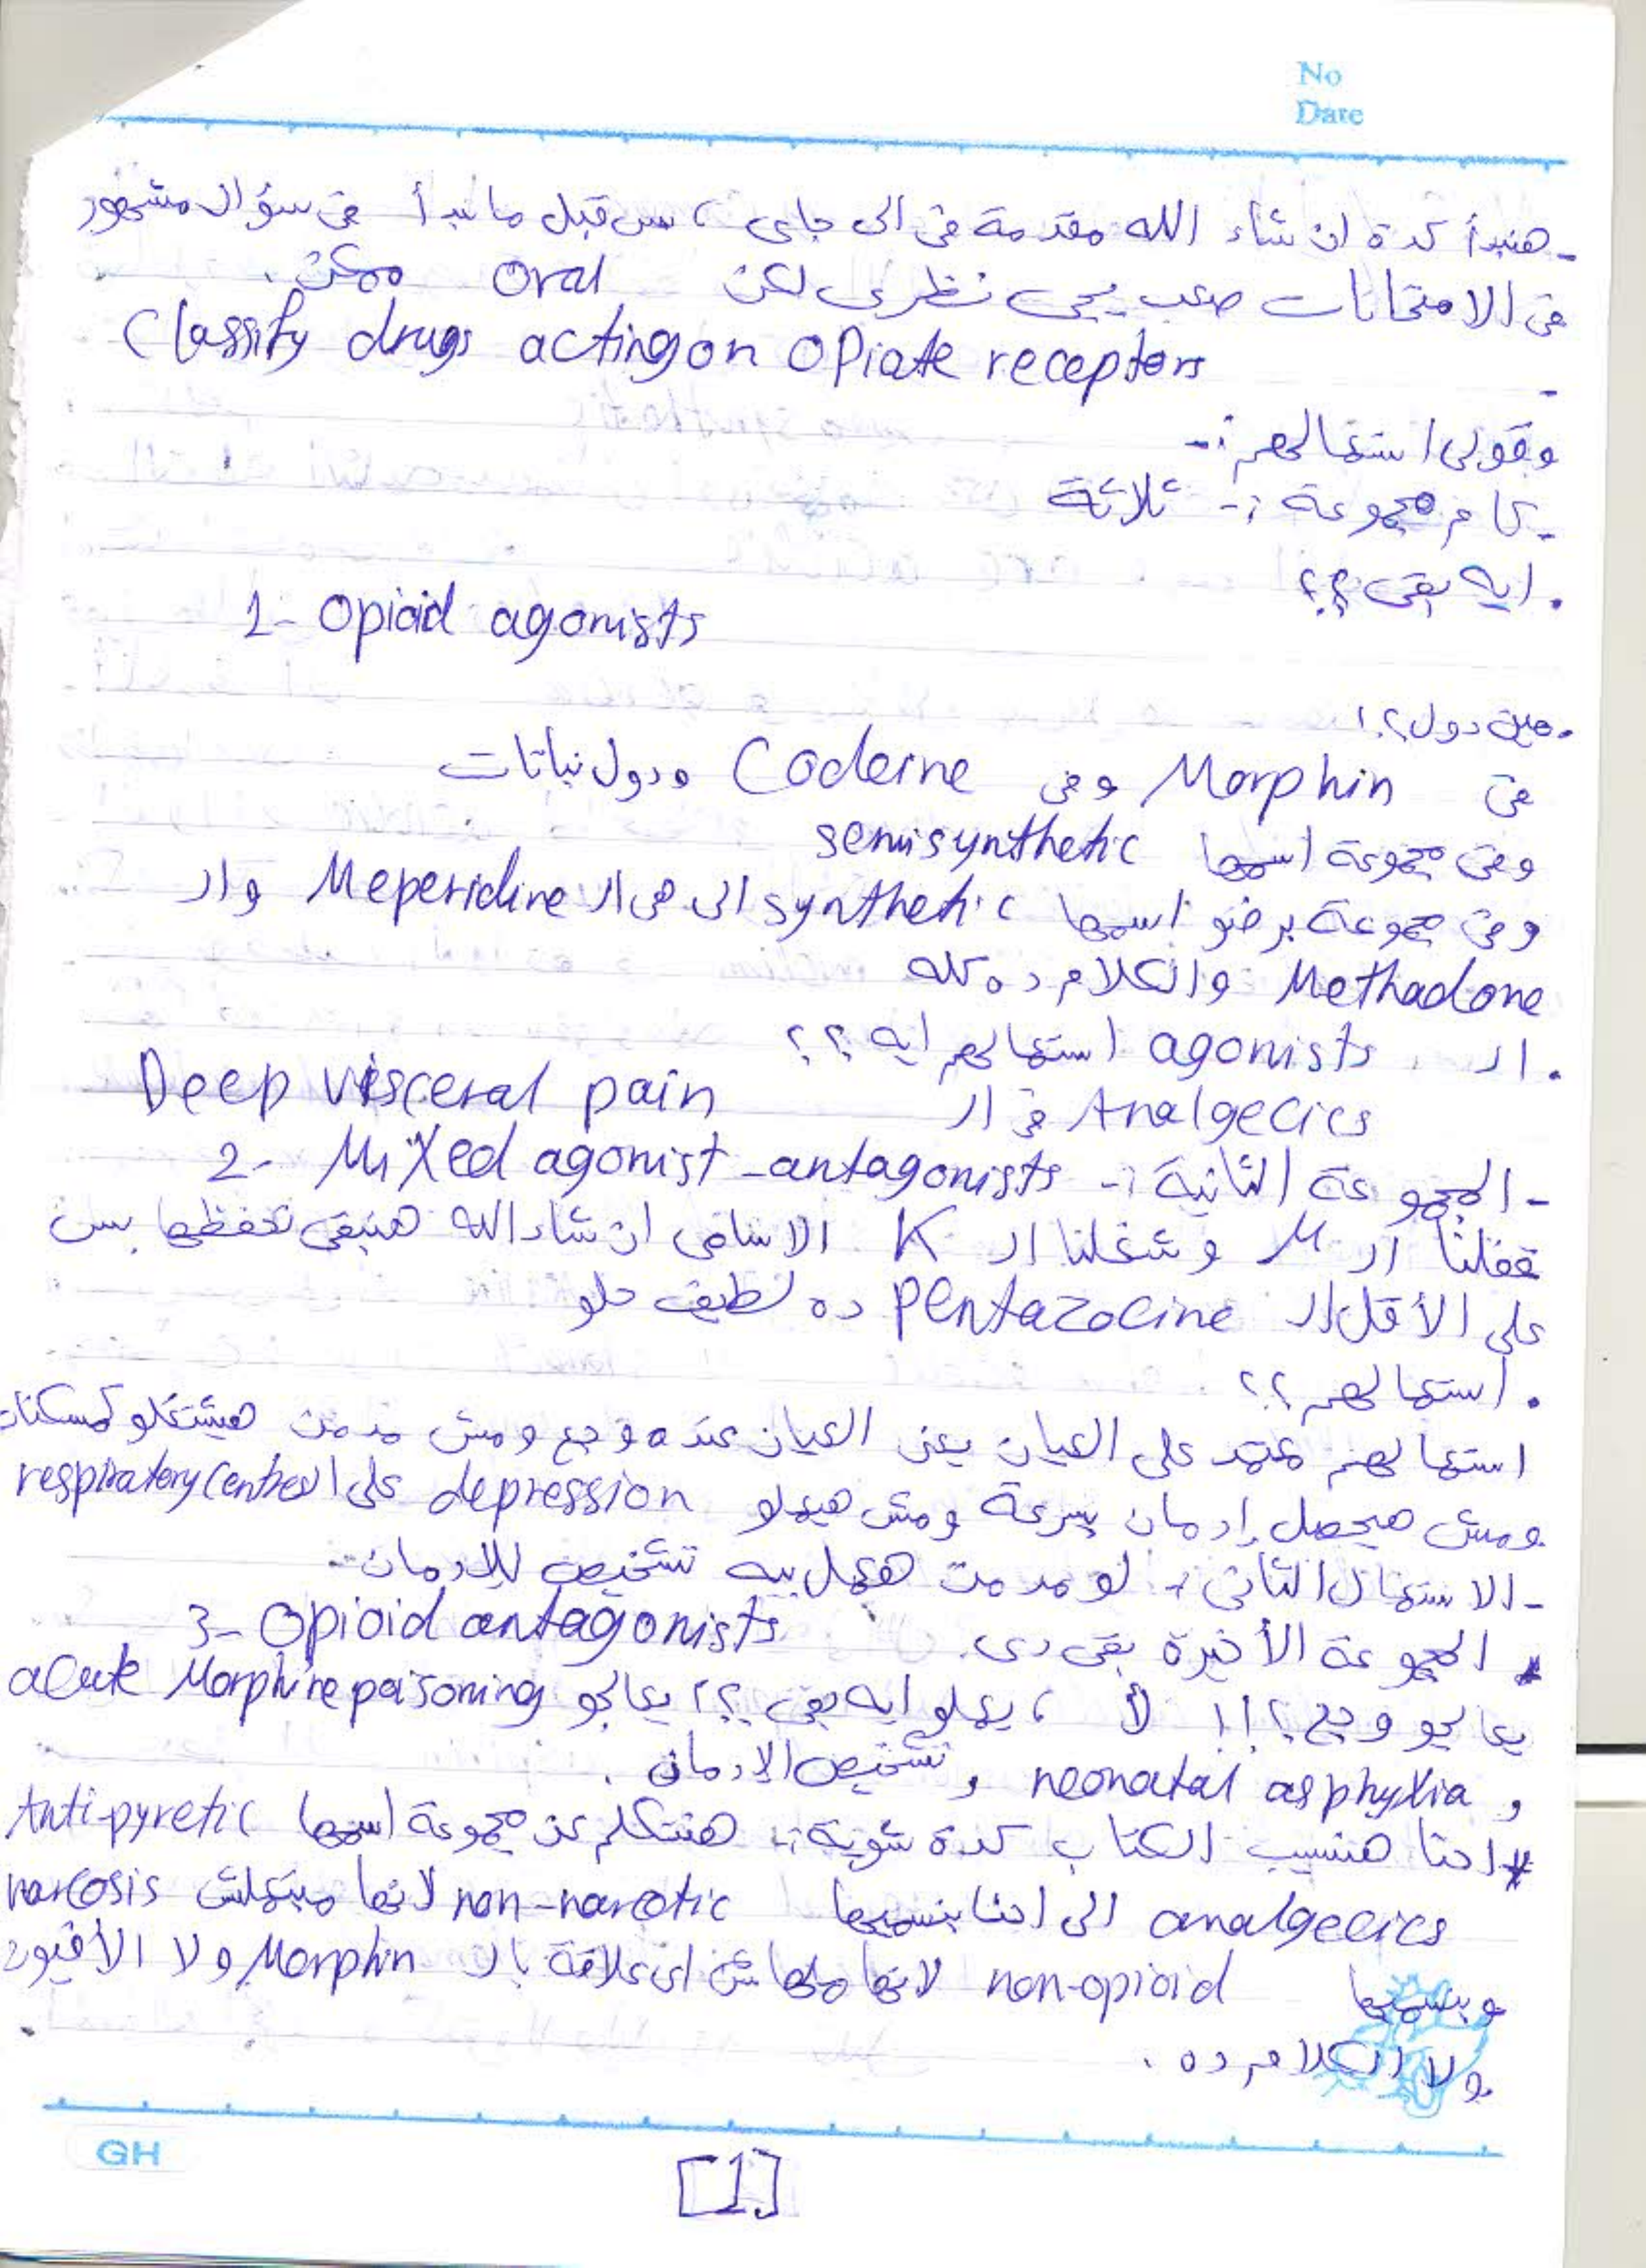 No
Date
- هنبدأ كدة ان شاء الله مقدمة فى الى جاى ، بس قبل ما نبدأ فى سؤال مشهور
فى الامتحانات صعب يجى نظرى لكن oral ممكن .
- Classify drugs acting on opiate receptors
وقولى استعمالهم :-
- كام مجموعة :- ثلاثة
. ايه بقى ؟؟
1- Opioid agonists
. مين دول ؟!
فى Morphin وفى Codeine ودول نباتات
وفى مجموعة اسمها semisynthetic
وفى مجموعة برضو اسمها synthetic الى هى ال Meperidine وال
Methadone والكلام ده كله
. ال agonists استعمالهم ايه ؟؟
Analgecics فى ال Deep visceral pain
- المجموعة الثانية :- 2- Mixed agonist-antagonists
قفلنا ال μ وشغلنا ال K الاسامى ان شاء الله هنبقى نحفظها بس
على الأقل ال Pentazocine ده لطيف حلو
. استعمالهم ؟؟
استعمالهم يعتمد على العيان يعنى العيان عنده وجع ومش مدمن هيشتغلو كمسكنات
ومش هيحصل إدمان بسرعة ومش هيعملو depression على ال respiratory centres
- الاستعمال الثانى :- لو مدمن هعمل بيه تشخيص للإدمان -
* المجموعة الأخيرة بقى دى . 3- Opioid antagonists
يعالجو وجع ؟!! لأ ، يعملو ايه بقى ؟؟ يعالجو acute Morphine poisoning
و neonatal asphyxia و تشخيص الإدمان .
* احنا هنسيب الكتاب كدة شوية :- هنتكلم عن مجموعة اسمها Anti-pyretic
analgecics الى احنا بنسميها non-narcotic لانها مبتعملش narcosis
وبنسميها non-opioid لانها ملهاش اى علاقة بال Morphin ولا الأفيون
ولا الكلام ده .
GH
[1]